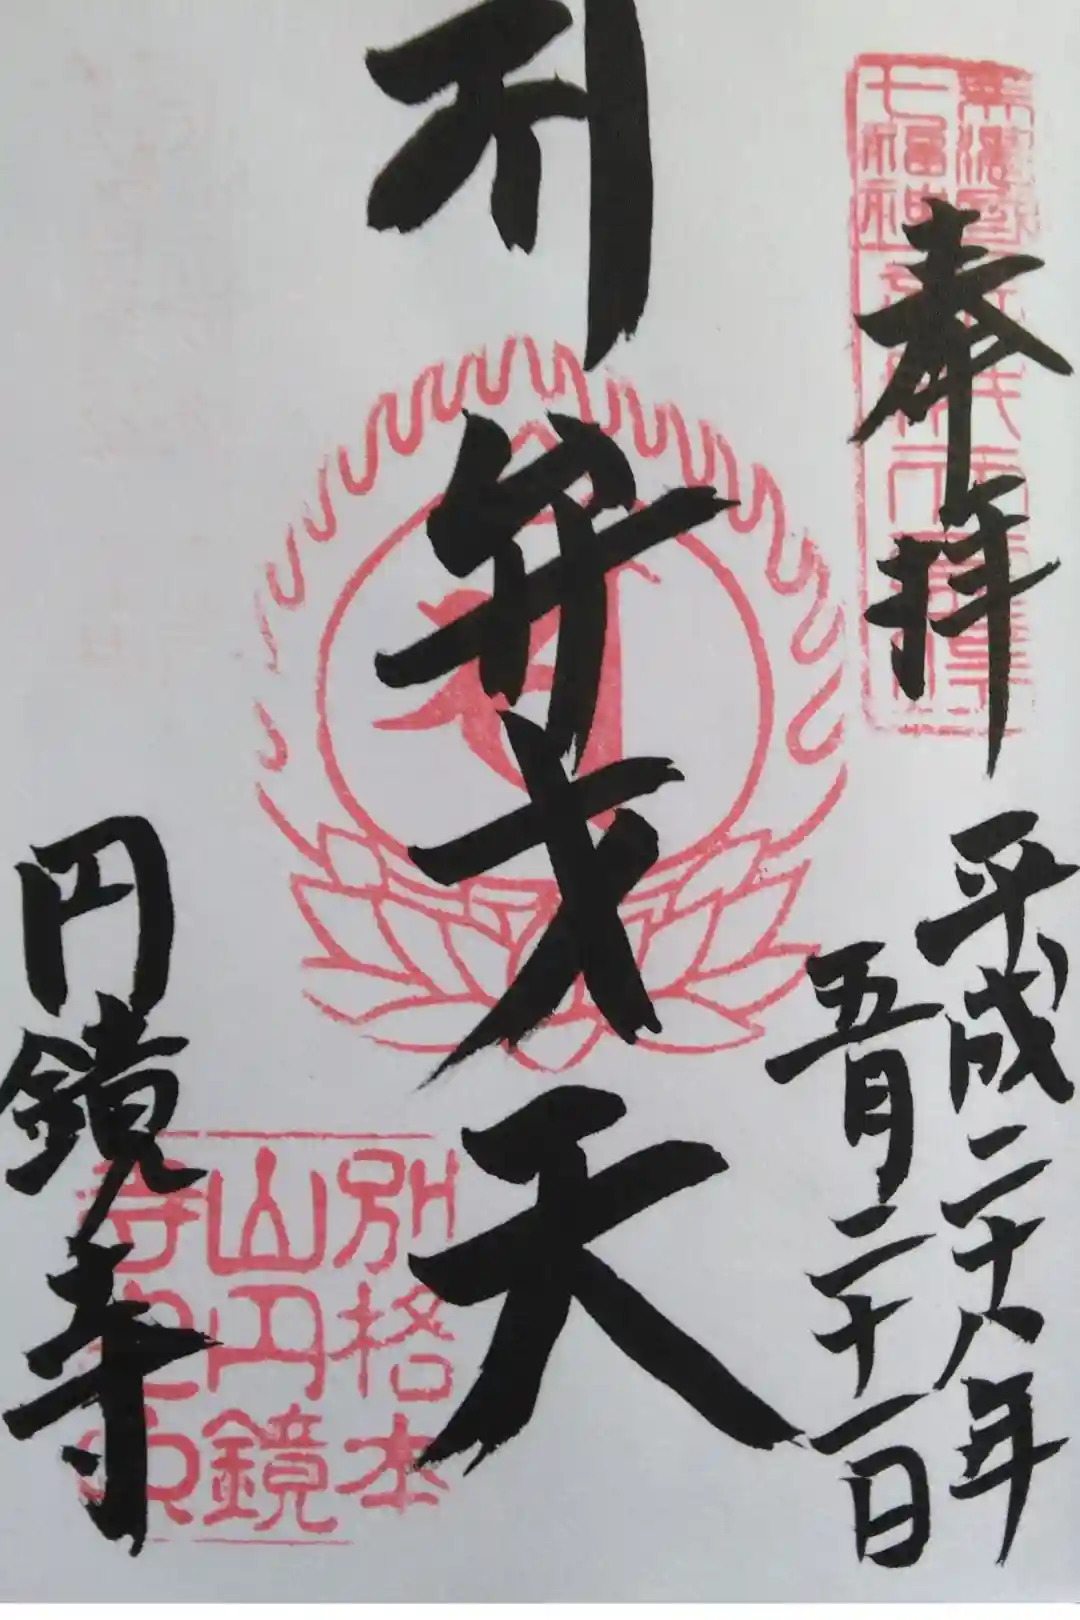 奉拝
平成二十八年
五月二十一日
弁才天
円鏡寺
七福神
別格本
山円鏡
寺之印